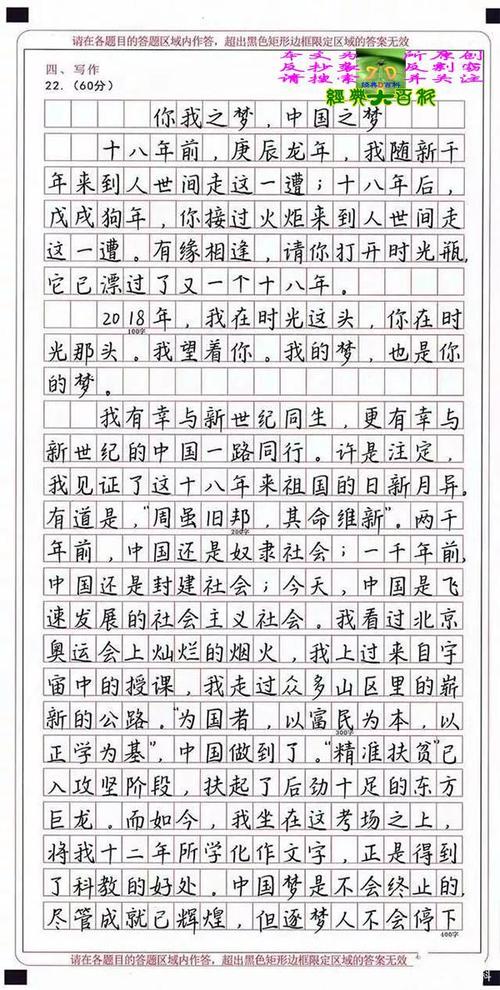 请在各题目的答题区域内作答，超出黑色矩形边框限定区域的答案无效
本文为 所原创
反抄袭 反剽窃
请搜索 并关注
经典D百科
經典大百科
四、写作
22.（60分）
你我之梦，中国之梦
十八年前，庚辰龙年，我随新千
年来到人世间走这一遭；十八年后，
戊戌狗年，你接过火炬来到人世间走
这一遭。有缘相逢，请你打开时光瓶，
它已漂过了又一个十八年。
2018年，我在时光这头，你在时
100字
光那头。我望着你。我的梦，也是你
的梦。
我有幸与新世纪同生，更有幸与
新世纪的中国一路同行。许是注定，
我见证了这十八年来祖国的日新月异。
有道是，“周虽旧邦，其命维新”。两千
200字
年前，中国还是奴隶社会；一千年前，
中国还是封建社会；今天，中国是飞
速发展的社会主义社会。我看过北京
奥运会上灿烂的烟火，我上过来自宇
宙中的授课，我走过众多山区里的崭
新的公路。“为国者，以富民为本，以
300字
正学为基”，中国做到了。“精准扶贫”已
入攻坚阶段，扶起了后劲十足的东方
巨龙。而如今，我坐在这考场之上，
将我十二年所学化作文字，正是得到
了科教的好处。中国梦是不会终止的，
尽管成就已辉煌，但逐梦人不会停下
400字
请在各题目的答题区域内作答，超出黑色矩形边框限定区域的答案无效